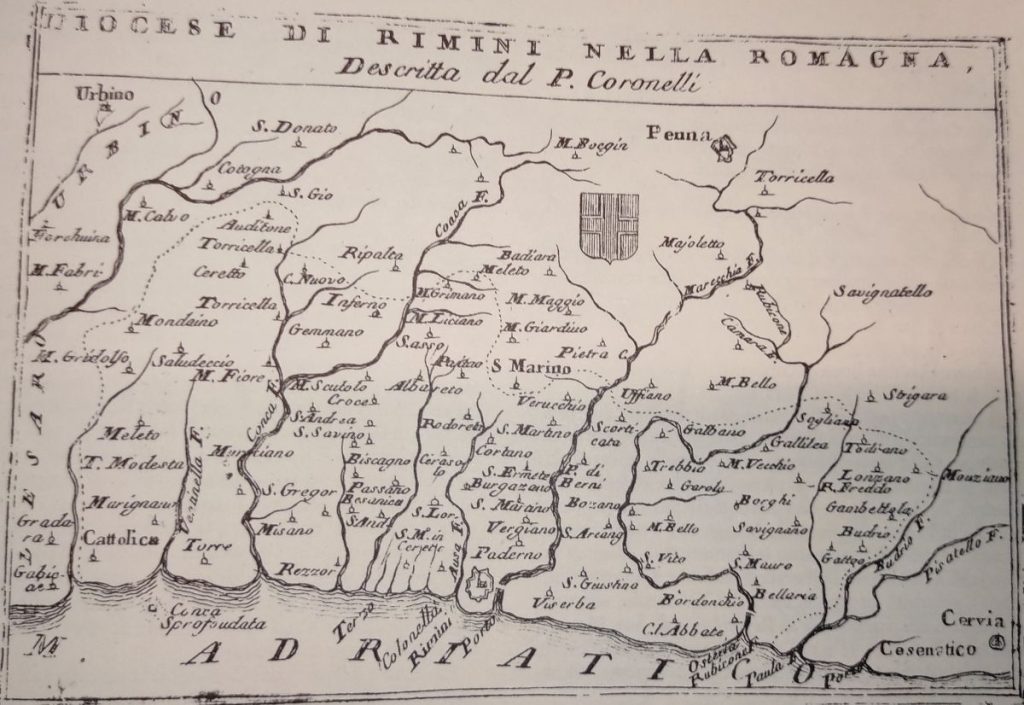 DIOCESE DI RIMINI NELLA ROMAGNA,
Descritta dal P. Coronelli
Urbino
URBINO
S. Donato
M. Boegin
Penna
Cotogna
S. Gio
Torricella
M. Calvo
Auditone
Conca F.
Torricella
Ripalta
Badiara
Majoletto
M. Fabri
Ceretto
C. Nuovo
Meleto
Marecchia F.
M. Grimano
M. Maggio
Rubicone
Savignatello
Torricella
Inferno
Mondaino
M. Liciano
M. Giardino
Camara F.
Gemmano
S. asso
Pietra C.
M. Gridolfo
Saludeccio
S Marino
M. Fiore
M. Scutolo
Albareto
M. Bello
Croce
Verucchio
Uffiano
Strigara
Conca F.
S. Andrea
Rodoreto
Scorti
cata
Galbano
Sogliano
Meleto
S. Savino
S. Martino
Gallilea
Todirano
Cortano
T. Modesta
Biscagno
Ceraso
lo
S. Ermete
P. di
Berni
Trebbia
M. Vecchio
Lonzano
Monziano
Passano
Burgazono
Garola
R. Freddo
Marignano
S. Gregor
Besanica
S. Lor.
S. Marano
Bozano
Borghi
Gambettola
Ventinella F.
Misano
S. And.
Vergiano
S. Arcang
M. Bello
Savignano
Budrio
Grada
ra
Cattolica
Torre
S. M. in
Cerpette
Ausa F.
Paderno
S. Vito
S. Mauro
Gatteo
Budrio F.
Pisatello F.
Rezzor
S. Giustino
Viserba
Bordonchio
Bellaria
Conca
Sprofondata
Terzo
Colonella
Rimini
Porto
C. l Abbate
Cervia
Osteria
Rubicone
Paula F.
Porto
Cesenatico
M
ADRIATICO
PESARO